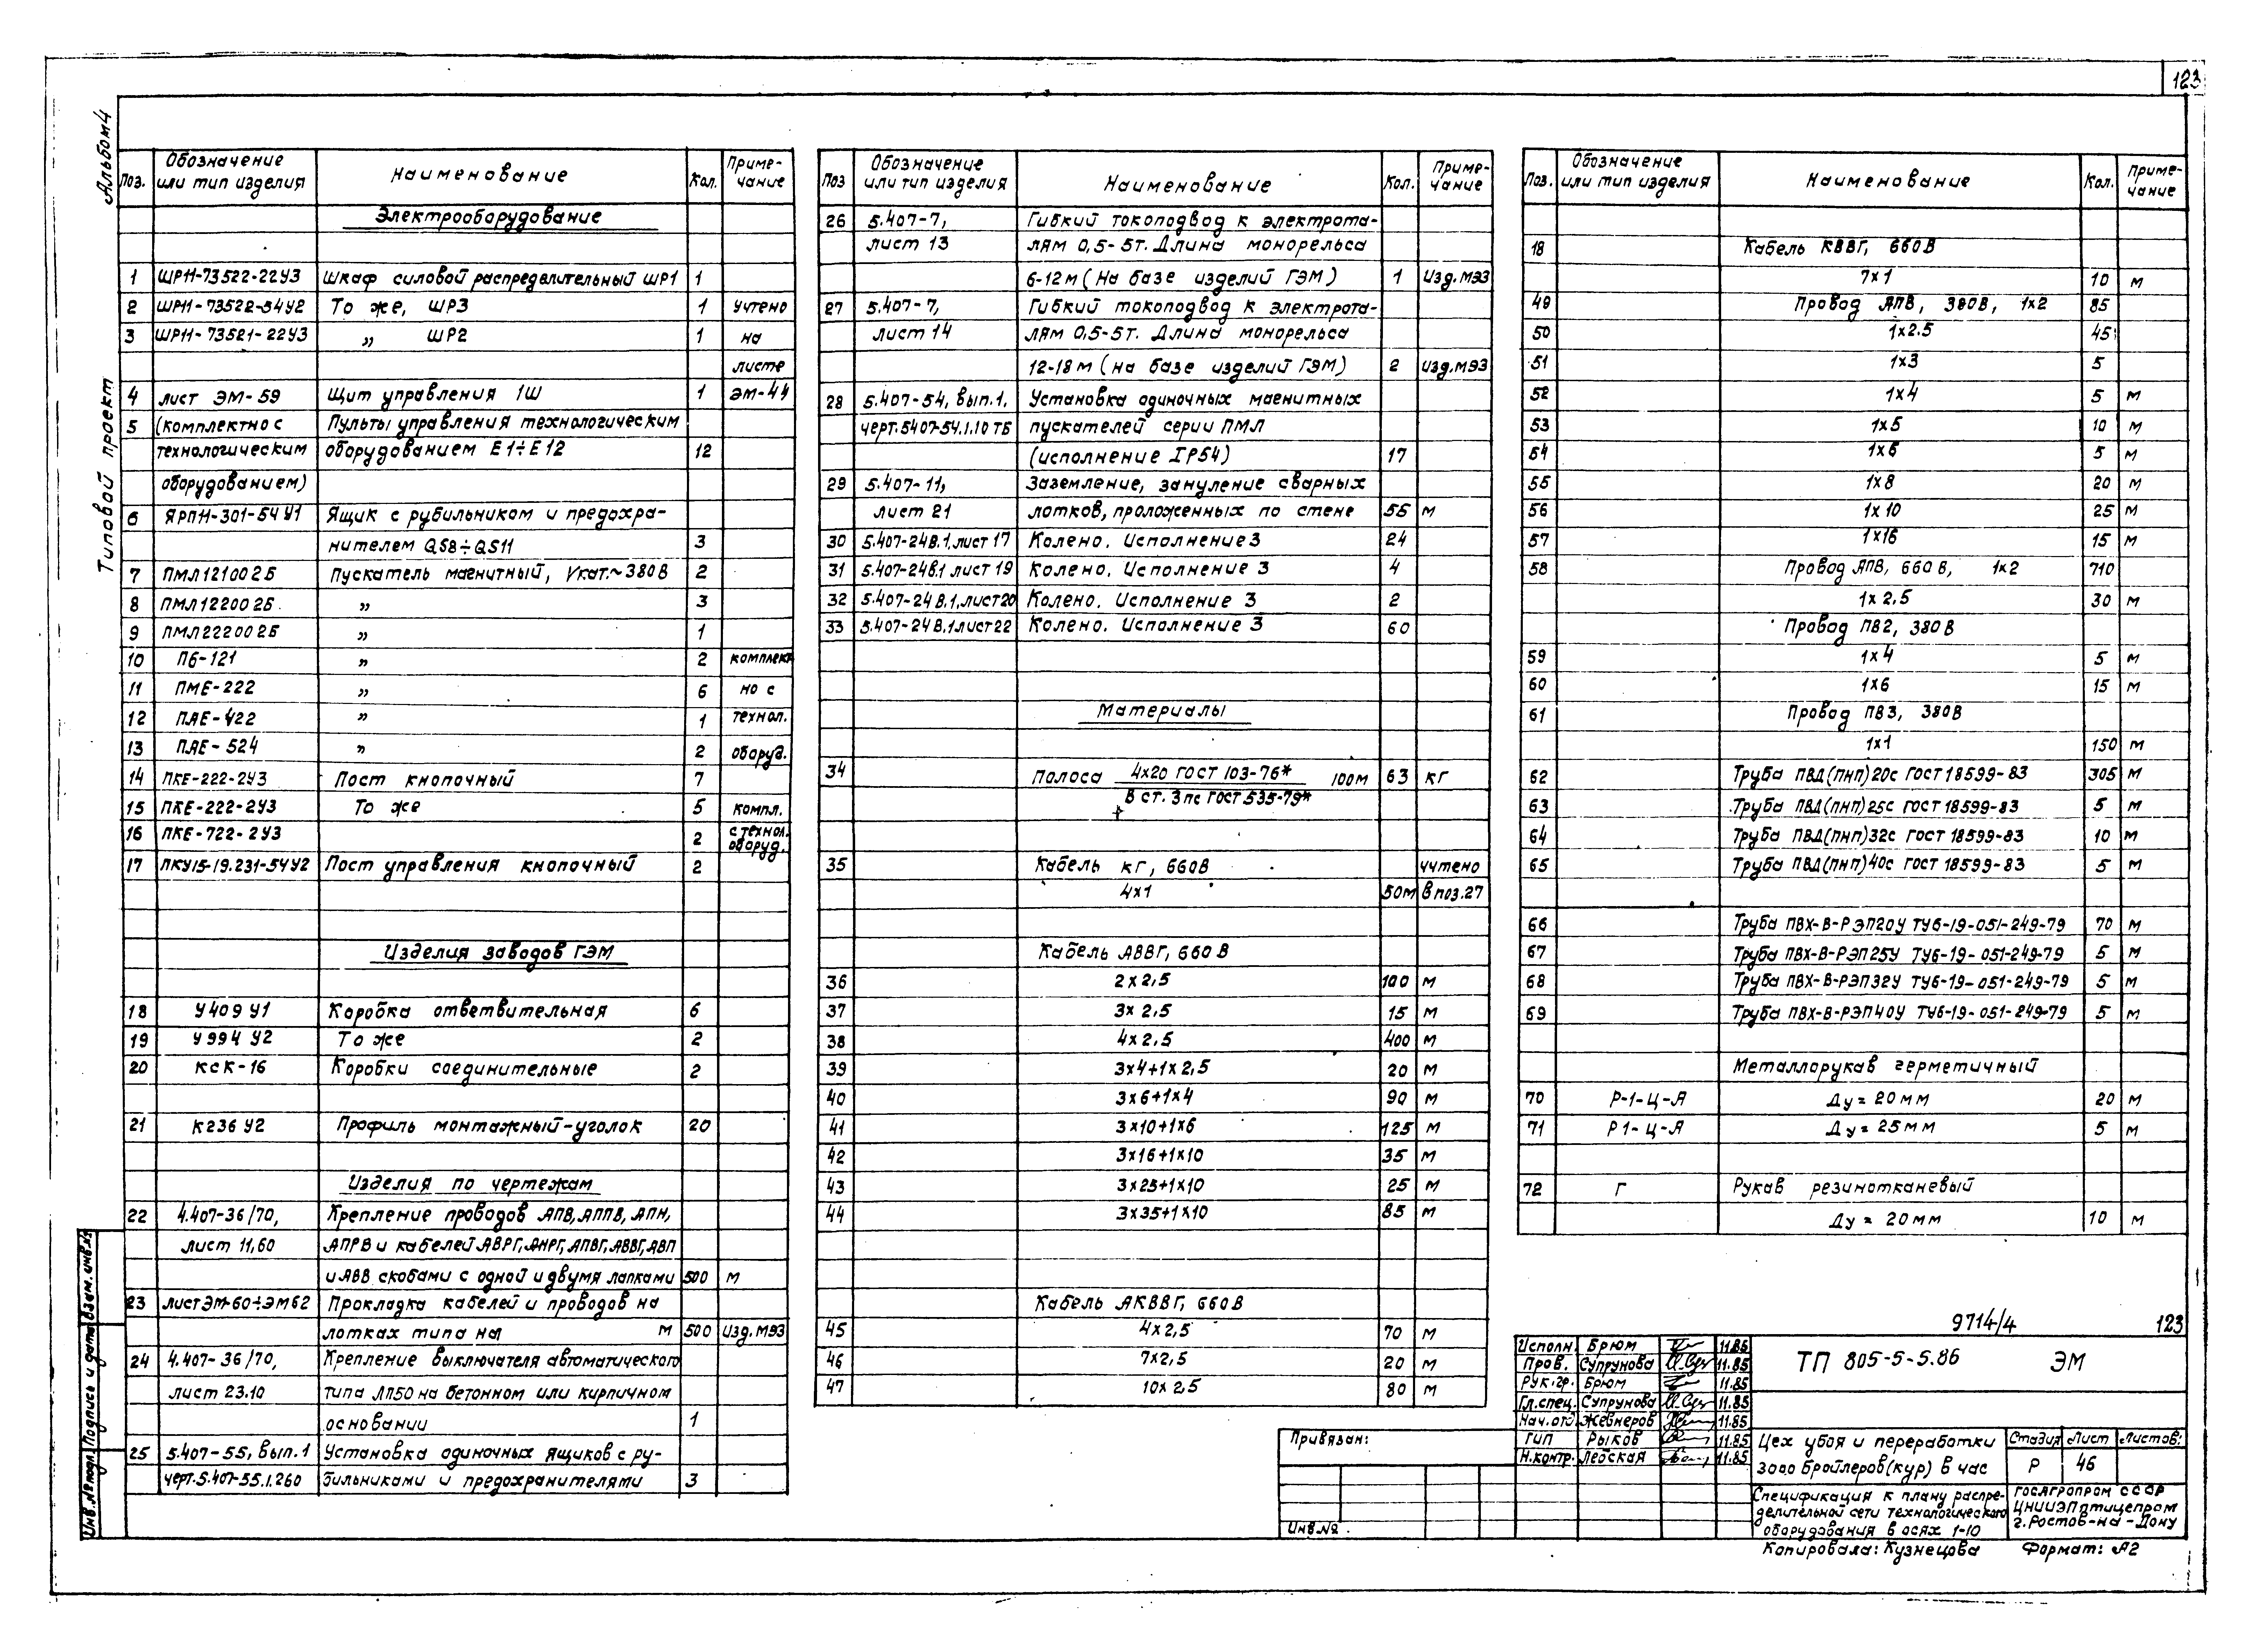 123
Альбом 4
Типовой проект
Поз. | Обозначение или тип изделия | Наименование | Кол. | Примечание
Электрооборудование
1 | ШР11-73522-22У3 | Шкаф силовой распределительный ШР1 | 1
2 | ШР11-73522-54У2 | То же, ШР3 | 1 | учтено
3 | ШР11-73521-22У3 | „ ШР2 | 1 | на
листе
4 | лист ЭМ-59 | Щит управления 1Ш | 1 | ЭМ-44
5 | (комплектно с | Пульты управления технологическим
технологическим | оборудованием Е1÷Е12 | 12
оборудованием)
6 | ЯРП11-301-54У1 | Ящик с рубильником и предохра-
нителем QS8÷QS11 | 3
7 | ПМЛ121002Б | Пускатель магнитный, Vкат.~380В | 2
8 | ПМЛ122002Б | „ | 3
9 | ПМЛ222002Б | „ | 1
10 | П6-121 | „ | 2 | комплект
11 | ПМЕ-222 | „ | 6 | но с
12 | ПАЕ-422 | „ | 1 | технол.
13 | ПАЕ-524 | „ | 2 | оборуд.
14 | ПКЕ-222-2У3 | Пост кнопочный | 7
15 | ПКЕ-222-2У3 | То же | 5 | компл.
16 | ПКЕ-722-2У3 | 2 | с технол. оборуд.
17 | ПКУ15-19.231-54У2 | Пост управления кнопочный | 2
Изделия заводов ГЭМ
18 | У409 У1 | Коробка ответвительная | 6
19 | У994 У2 | То же | 2
20 | КСК-16 | Коробки соединительные | 2
21 | К236 У2 | Профиль монтажный-уголок | 20
Изделия по чертежам
22 | 4.407-36/70, | Крепление проводов АПВ, АППВ, АПН,
лист 11,60 | АПРВ и кабелей АВРГ, АНРГ, АПВГ, АВВГ, АВП
и АВВ скобами с одной и двумя лапками | 500 | м
23 | лист ЭМ-60÷ЭМ62 | Прокладка кабелей и проводов на
лотках типа на | м | 500 | Изд. МЭЗ
24 | 4.407-36/70, | Крепление выключателя автоматического
лист 23.10 | типа АП50 на бетонном или кирпичном
основании | 1
25 | 5.407-55, вып.1 | Установка одиночных ящиков с ру-
черт.5.407-55.1.260 | бильниками и предохранителями | 3
Поз | Обозначение или тип изделия | Наименование | Кол. | Примечание
26 | 5.407-7, | Гибкий токоподвод к электрота-
лист 13 | лям 0,5-5т. Длина монорельса
6-12м (На базе изделий ГЭМ) | 1 | Изд. МЭЗ
27 | 5.407-7, | Гибкий токоподвод к электрота-
лист 14 | лям 0,5-5т. Длина монорельса
12-18м (на базе изделий ГЭМ) | 2 | Изд. МЭЗ
28 | 5.407-54, вып.1, | Установка одиночных магнитных
черт.5407-54.1.10 ТБ | пускателей серии ПМЛ
(исполнение IP54) | 17
29 | 5.407-11, | Заземление, зануление сварных
лист 21 | лотков, проложенных по стене | 55 | м
30 | 5.407-24В.1, лист 17 | Колено. Исполнение 3 | 24
31 | 5.407-24В.1 лист 19 | Колено. Исполнение 3 | 4
32 | 5.407-24В.1, лист 20 | Колено. Исполнение 3 | 2
33 | 5.407-24В.1 лист 22 | Колено. Исполнение 3 | 60
Материалы
34 | Полоса 4х20 ГОСТ 103-76* | 100м | 63 | кг
В ст. 3пс ГОСТ 535-79*
35 | Кабель кг, 660В | учтено
4х1 | 50м | в поз.27
Кабель АВВГ, 660В
36 | 2х2,5 | 100 | м
37 | 3х2,5 | 15 | м
38 | 4х2,5 | 400 | м
39 | 3х4+1х2,5 | 20 | м
40 | 3х6+1х4 | 90 | м
41 | 3х10+1х6 | 125 | м
42 | 3х16+1х10 | 35 | м
43 | 3х25+1х10 | 25 | м
44 | 3х35+1х10 | 85 | м
Кабель АКВВГ, 660В
45 | 4х2,5 | 70 | м
46 | 7х2,5 | 20 | м
47 | 10х2,5 | 80 | м
Поз. | Обозначение или тип изделия | Наименование | Кол. | Примечание
18 | Кабель КВВГ, 660В
7х1 | 10 | м
49 | Провод АПВ, 380В, 1х2 | 85
50 | 1х2.5 | 45
51 | 1х3 | 5
52 | 1х4 | 5 | м
53 | 1х5 | 10 | м
54 | 1х6 | 5 | м
55 | 1х8 | 20 | м
56 | 1х10 | 25 | м
57 | 1х16 | 15 | м
58 | Провод АПВ, 660В, 1х2 | 710
1х2,5 | 30 | м
Провод ПВ2, 380В
59 | 1х4 | 5 | м
60 | 1х6 | 15 | м
61 | Провод ПВ3, 380В
1х1 | 150 | м
62 | Труба ПВД(ПНП)20с ГОСТ 18599-83 | 305 | м
63 | Труба ПВД(ПНП)25с ГОСТ 18599-83 | 5 | м
64 | Труба ПВД(ПНП)32с ГОСТ 18599-83 | 10 | м
65 | Труба ПВД(ПНП)40с ГОСТ 18599-83 | 5 | м
66 | Труба ПВХ-В-РЭП20У ТУ6-19-051-249-79 | 70 | м
67 | Труба ПВХ-В-РЭП25У ТУ6-19-051-249-79 | 5 | м
68 | Труба ПВХ-В-РЭП32У ТУ6-19-051-249-79 | 5 | м
69 | Труба ПВХ-В-РЭП40У ТУ6-19-051-249-79 | 5 | м
Металлорукав герметичный
70 | Р-1-Ц-А | Ду = 20мм | 20 | м
71 | Р1-Ц-А | Ду = 25мм | 5 | м
72 | Г | Рукав резинотканевый
Ду = 20мм | 10 | м
9714/4 123
Исполн. | Брюм | 11.85
Пров. | Супрунова | 11.85
Рук.гр. | Брюм | 11.85
Гл.спец. | Супрунова | 11.85
Нач.отд | Жевнеров | 11.85
ГИП | Рыков | 11.85
Н.контр. | Левская | 11.85
ТП 805-5-5.86 ЭМ
Цех убоя и переработки
3000 бройлеров(кур) в час
Стадия | Лист | Листов
Р | 46
Спецификация к плану распре-
делительной сети технологического
оборудования в осях 1-10
Госагропром СССР
ЦНИИЭПптицепром
г.Ростов-на-Дону
Привязан:
Инв.№
Копировала: Кузнецова Формат: А2
Взам. инв.№
Подпись и дата
Инв.№ подл.